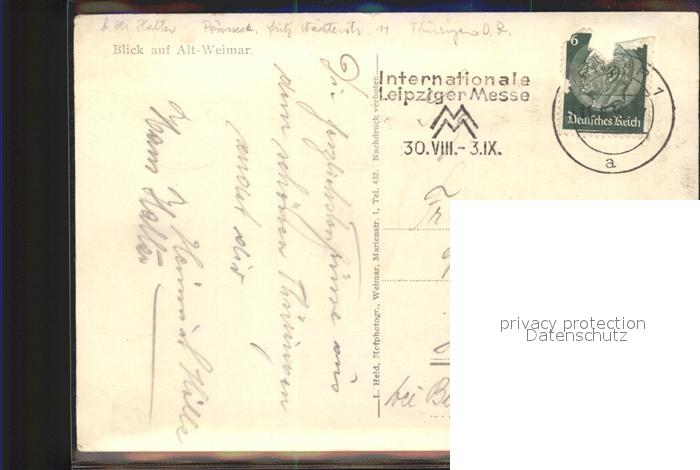 Hr. Halter Pössneck, Fritz Wächterstr. 11 Thüringen D. R.
Blick auf Alt-Weimar.
Internationale
Leipziger Messe
30.VIII.-3.IX.
6
Deutsches Reich
a
Die herzlichsten Grüsse aus
dem schönen Thüringen
sendet dir
Hans Halter
L. Held, Hofphotogr., Weimar, Marienstr. 1, Tel. 432. Nachdruck verboten.
Fr
bei Ba
privacy protection
Datenschutz